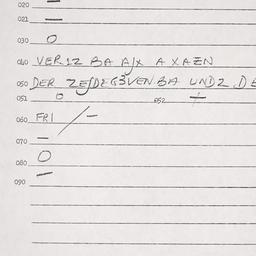 020 —
021 —
030 O
040 VER12 BA A/X A XAZN
050 DER ZE/DEG3VEN BA UND2 DE
051 O 052 +
060 FRI / —
070 —
080 O
—
090